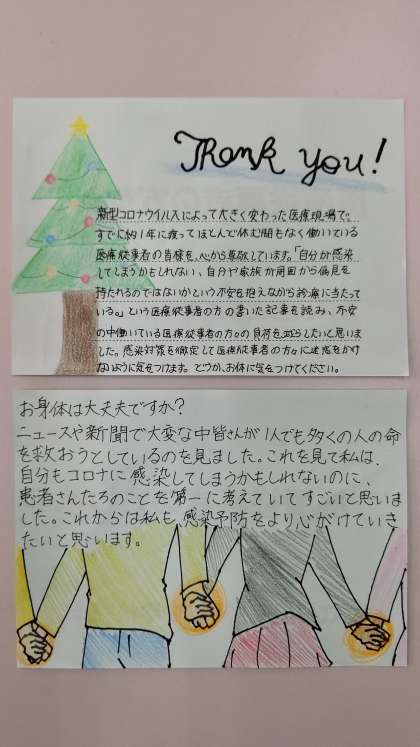 Thank you!
新型コロナウイルスによって大きく変わった医療現場で、
すでに約1年に渡ってほとんど休む間もなく働いている
医療従事者の皆様を、心から尊敬しています。「自分が感染
してしまうかもしれない、自分や家族が周囲から偏見を
持たれるのではないかという不安を抱えながら診療に当たって
いる。」という医療従事者の方の書いた記事を読み、不安
の中働いている医療従事者の方々の負担を減らしたいと思いま
した。感染対策を徹底して医療従事者の方々に迷惑をかけ
ないように気をつけます。どうか、お体に気をつけてください。
お身体は大丈夫ですか？
ニュースや新聞で大変な中皆さんが1人でも多くの人の命
を救おうとしているのを見ました。これを見て私は、
自分もコロナに感染してしまうかもしれないのに、
患者さんたちのことを第一に考えていてすごいと思いま
した。これからは私も感染予防をより心がけていき
たいと思います。